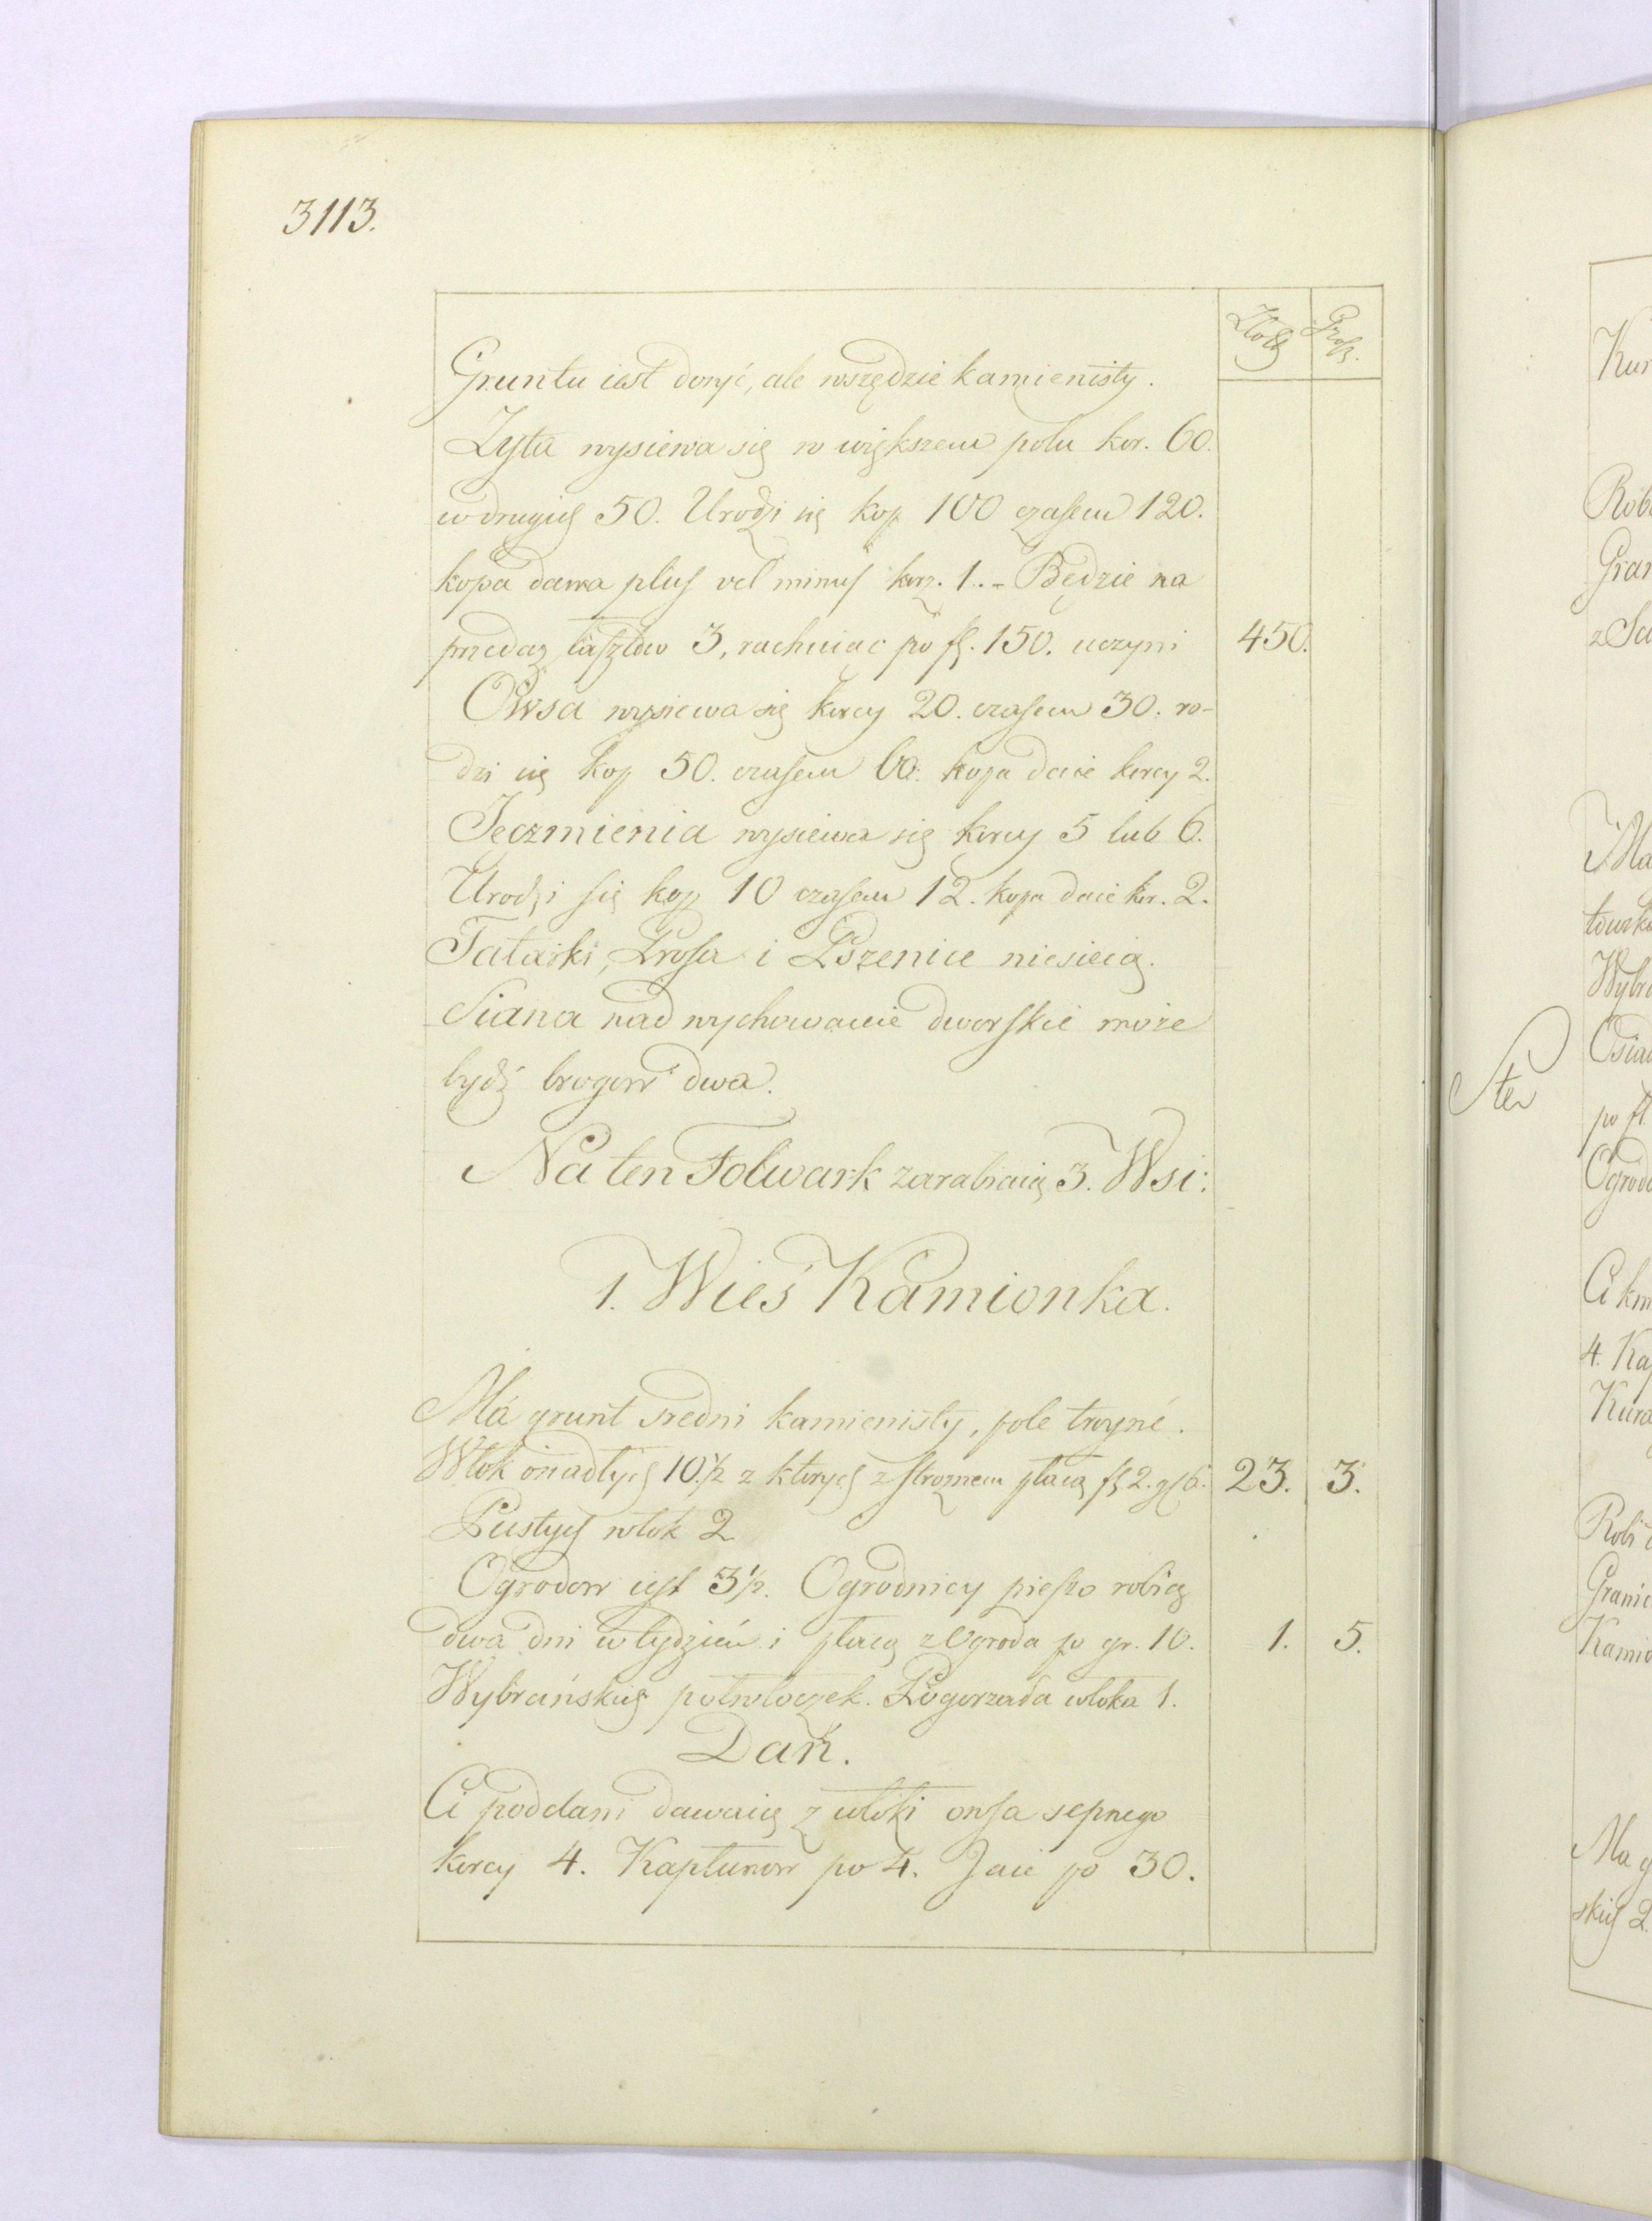 3113.
Złoty Grosz.
Gruntu iest dosyć, ale wszędzie kamienisty.
Zyta wysiewa się w większem polu kor. 60.
w drugich 50. Urodzi się kop 100 czasem 120.
kopa dawa plus vel minus korz. 1. - Będzie na
przedaz łasztow 3, rachuiąc po fl. 150. uczyni 450.
Owsa wysiewa się korcy 20. czasem 30. ro-
dzi się kop 50. czasem 60. kopa daie korcy 2.
Jęczmienia wysiewa się korcy 5 lub 6.
Urodzi się kop 10 czasem 12. kopa daie kor. 2.
Tatarki, Prosa i Pszenice niesieią.
Siana nad wychowanie dworskie może
bydź brogow dwa.
Na ten Folwark zarabiaią 3. Wsi:
1. Wieś Kamionka.
Ma grunt sredni kamienisty, pole troyne.
Włok osiadłych 10 1/2 z ktorych z stroznem płacą fl 2. gr 6. 23. 3.
Pustych włok 2
Ogrodow iest 3 1/2. Ogrodnicy pieszo robią
dwa dni w tydzień i płacą z Ogroda po gr. 10. 1. 5.
Wybrańskich połwłoczek. Pogorzała włoka 1.
Dań.
Ci poddani dawaią z włoki owsa sepnego
korcy 4. Kapłunow po 4. Jaie po 30.